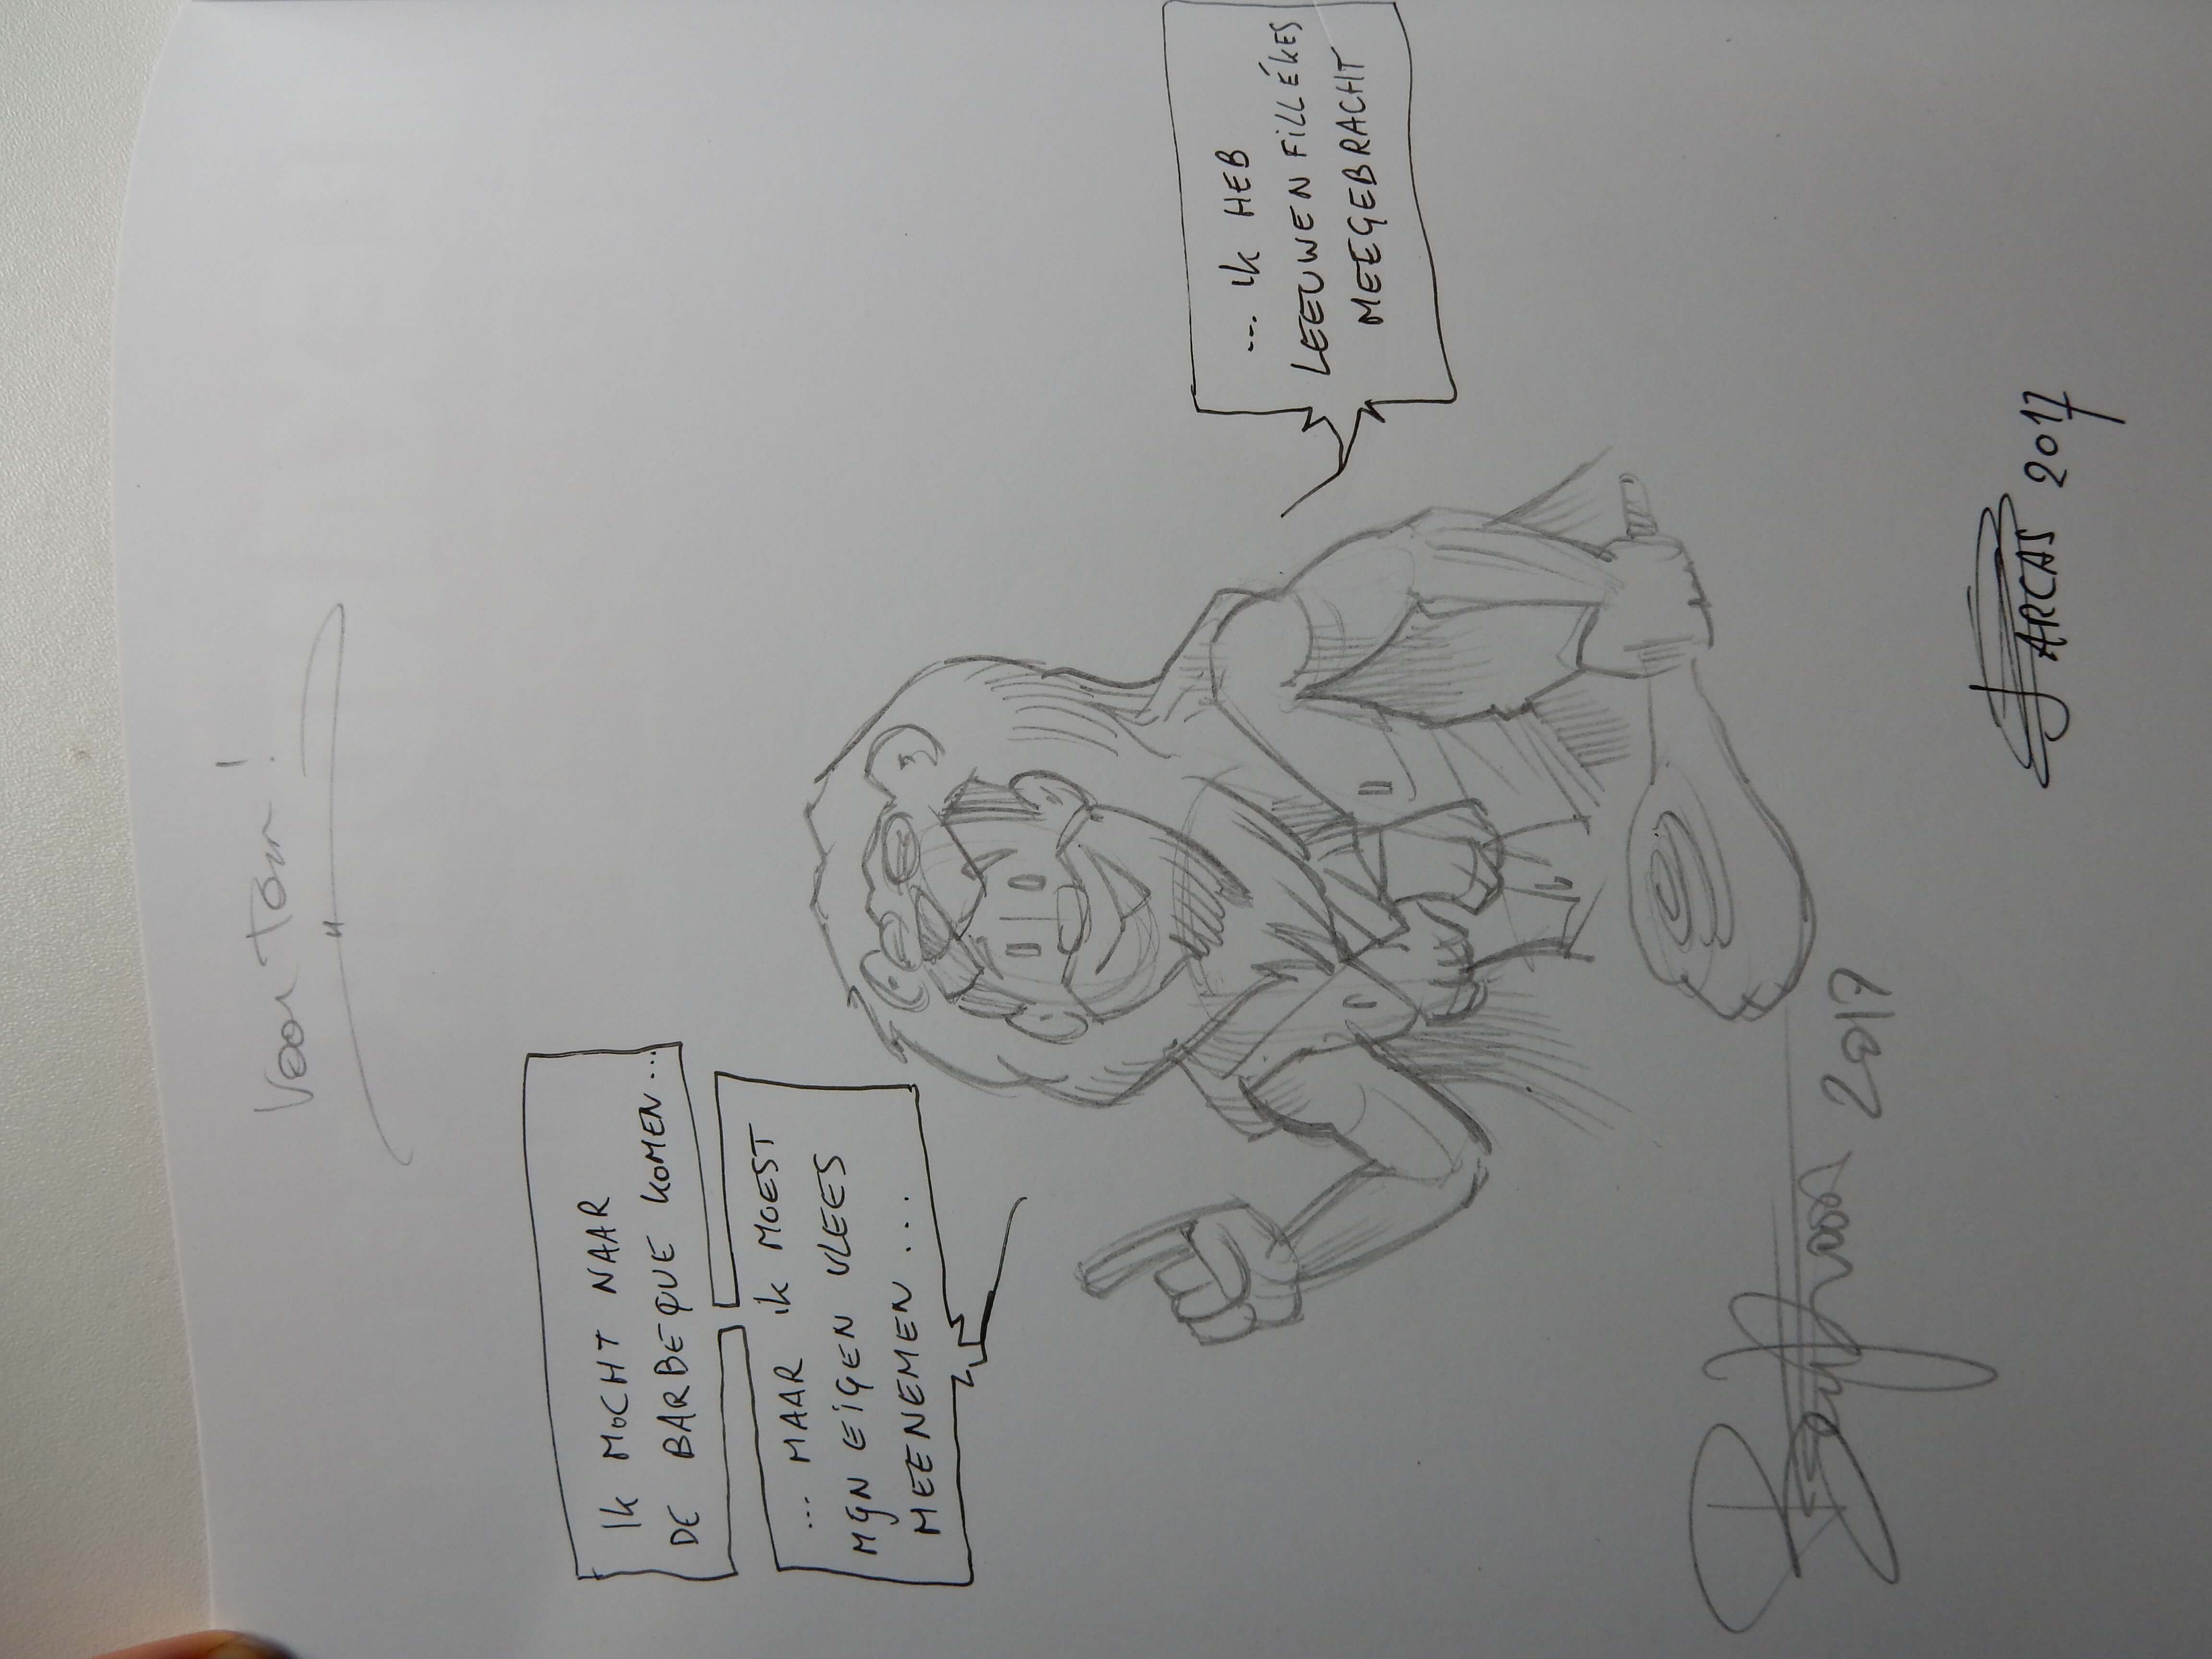 Voor Tom!
IK MOCHT NAAR
DE BARBEQUE KOMEN...
... MAAR IK MOEST
MIJN EIGEN VLEES
MEENEMEN ...
... IK HEB
LEEUWENFILLÉKES
MEEGEBRACHT
2017
JARCAS 2017